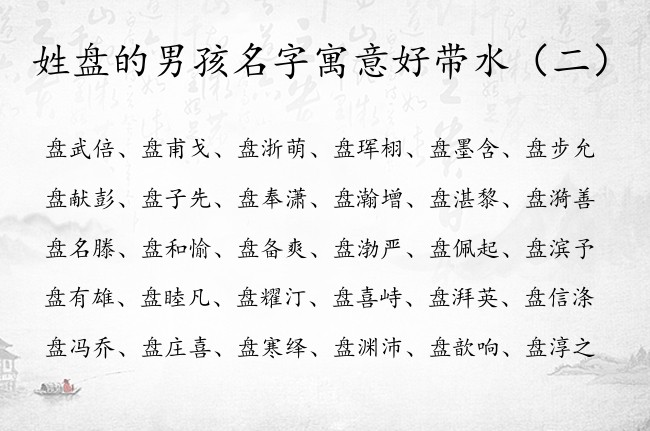 姓盘的男孩名字寓意好带水（二）
盘武倍、盘甫戈、盘浙萌、盘珲栩、盘墨含、盘步允
盘献彭、盘子先、盘奉潇、盘瀚增、盘湛黎、盘漪善
盘名滕、盘和愉、盘备爽、盘渤严、盘佩起、盘滨予
盘有雄、盘睦凡、盘耀汀、盘喜峙、盘湃英、盘信涤
盘冯乔、盘庄喜、盘寒绎、盘渊沛、盘歆响、盘淳之